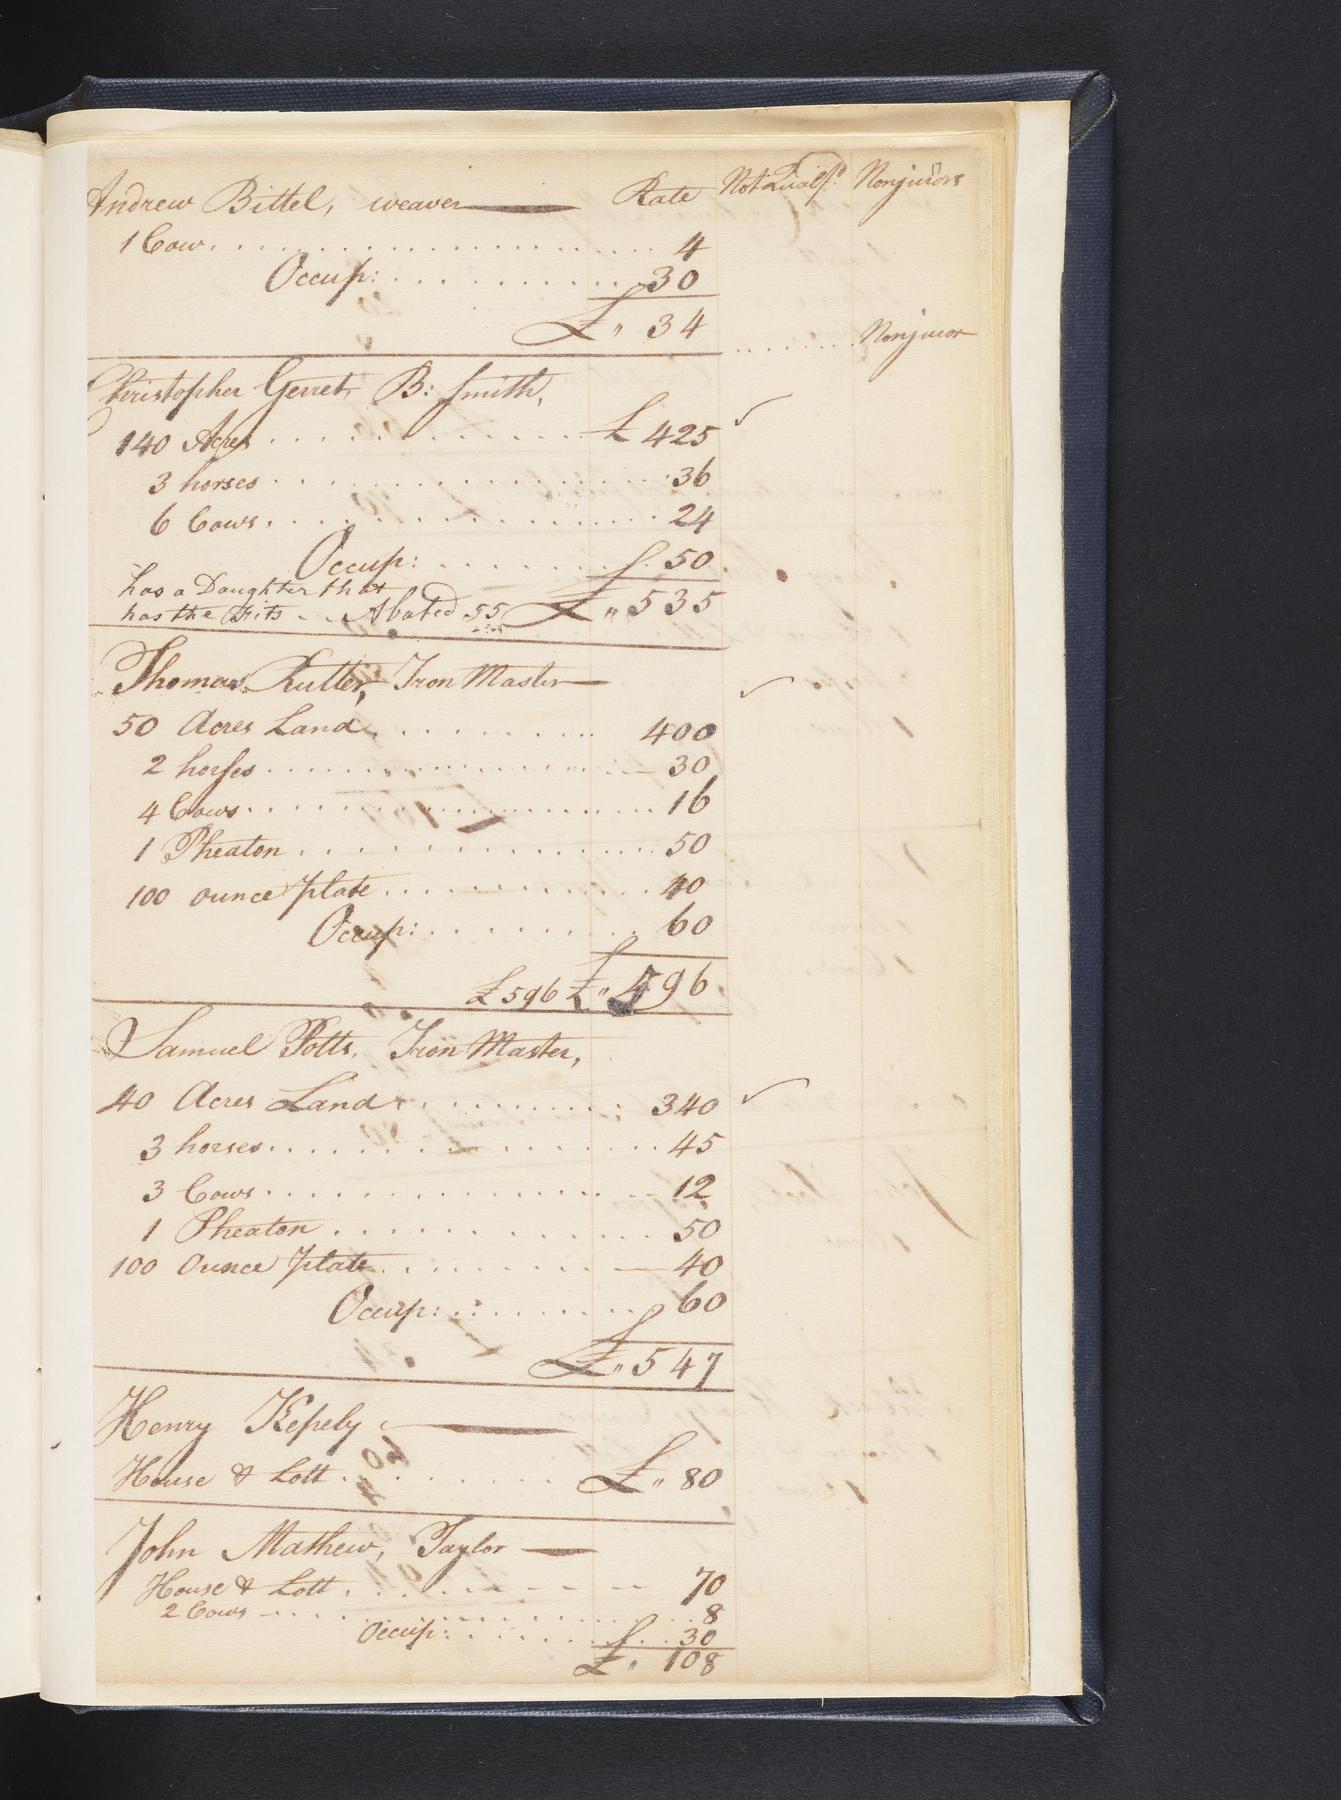 Andrew Bittel, weaver Rate Not Qualf.d Nonjurors
1 Cow 4
Occup: 30
£ " 34
Nonjuror
Christopher Gerret, B: Smith,
140 Acres £ 425 ✓
3 horses 36
6 Cows 24
Occup: 50
has a Daughter that
has the Fits Abated 55 £ " 535
Thomas Rutter, Iron Master ✓
50 Acres Land 400
2 horses 30
4 Cows 16
1 Pheaton 50
100 ounce plate 40
Occup: 60
£ 596 £ " 596
Samuel Potts, Iron Master,
40 Acres Land 340 ✓
3 horses 45
3 Cows 12
1 Pheaton 50
100 Ounce plate 40
Occup: 60
£ " 547
Henry Kepely
House & Lott £ " 80
John Mathew, Taylor
House & Lott 70
2 Cows 8
Occup: 30
£ " 108